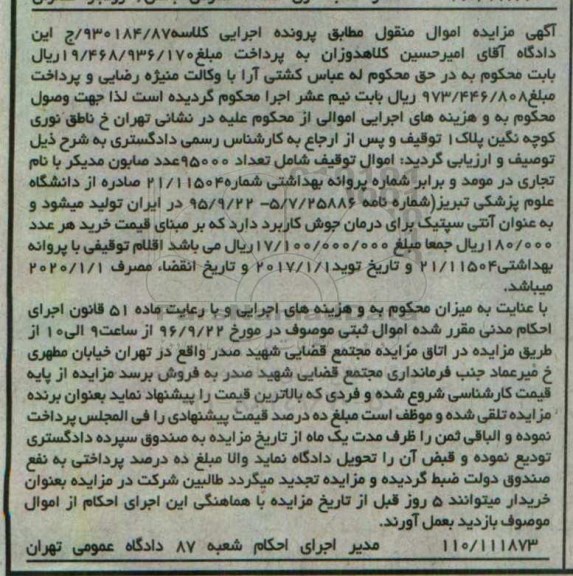 آگهی مزایده اموال منقول مطابق پرونده اجرایی کلاسه۹۳۰۱۸۴/۸۷/ج این
دادگاه آقای امیرحسین کلاهدوزان به پرداخت مبلغ۱۹/۴۶۸/۹۳۶/۱۷۰ریال
بابت محکوم به در حق محکوم له عباس کشتی آرا با وکالت منیژه رضایی و پرداخت
مبلغ۹۷۳/۴۴۶/۸۰۸ ریال بابت نیم عشر اجرا محکوم گردیده است لذا جهت وصول
محکوم به و هزینه های اجرایی اموالی از محکوم علیه در نشانی تهران خ ناطق نوری
کوچه نگین پلاک۱ توقیف و پس از ارجاع به کارشناس رسمی دادگستری به شرح ذیل
توصیف و ارزیابی گردید: اموال توقیف شامل تعداد ۹۵۰۰۰عدد صابون مدیکر با نام
تجاری در مومد و برابر شماره پروانه بهداشتی شماره۲۱/۱۱۵۰۴ صادره از دانشگاه
علوم پزشکی تبریز(شماره نامه ۵/۷/۲۵۸۸۶– ۹۵/۹/۲۲ در ایران تولید میشود و
به عنوان آنتی سپتیک برای درمان جوش کاربرد دارد که بر مبنای قیمت خرید هر عدد
۱۸۰/۰۰۰ریال جمعا مبلغ ۱۷/۱۰۰/۰۰۰/۰۰۰ریال می باشد اقلام توقیفی با پروانه
بهداشتی۲۱/۱۱۵۰۴ و تاریخ توید۲۰۱۷/۱/۱ و تاریخ انقضاء مصرف ۲۰۲۰/۱/۱
میباشد.
با عنایت به میزان محکوم به و هزینه های اجرایی و با رعایت ماده ۵۱ قانون اجرای
احکام مدنی مقرر شده اموال ثبتی موصوف در مورخ ۹۶/۹/۲۲ از ساعت۹ الی۱۰ از
طریق مزایده در اتاق مزایده مجتمع قضایی شهید صدر واقع در تهران خیابان مطهری
خ میرعماد جنب فرمانداری مجتمع قضایی شهید صدر به فروش برسد مزایده از پایه
قیمت کارشناسی شروع شده و فردی که بالاترین قیمت را پیشنهاد نماید بعنوان برنده
مزایده تلقی شده و موظف است مبلغ ده درصد قیمت پیشنهادی را فی المجلس پرداخت
نموده و الباقی ثمن را ظرف مدت یک ماه از تاریخ مزایده به صندوق سپرده دادگستری
تودیع نموده و قبض آن را تحویل دادگاه نماید والا مبلغ ده درصد پرداختی به نفع
صندوق دولت ضبط گردیده و مزایده تجدید میگردد طالبین شرکت در مزایده بعنوان
خریدار میتوانند ۵ روز قبل از تاریخ مزایده با هماهنگی این اجرای احکام از اموال
موصوف بازدید بعمل آورند.
۱۱۰/۱۱۱۸۷۳ مدیر اجرای احکام شعبه ۸۷ دادگاه عمومی تهران